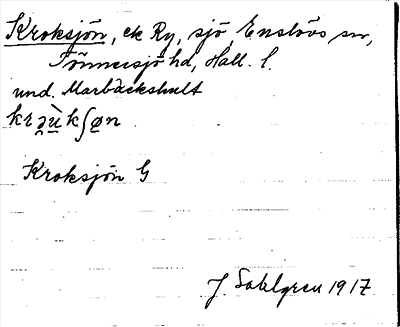 Kroksjön, ek Ry, sjö, Enslövs sn,
Tönnersjö hd, Hall. l.
und. Marbäckshult
krəùkʃøn
Kroksjön G
J. Sahlgren 1917